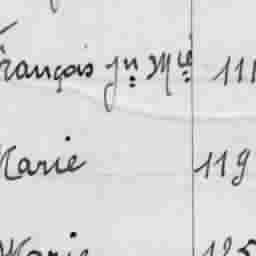 François Jn Mie 111
Marie 119
Marie 125